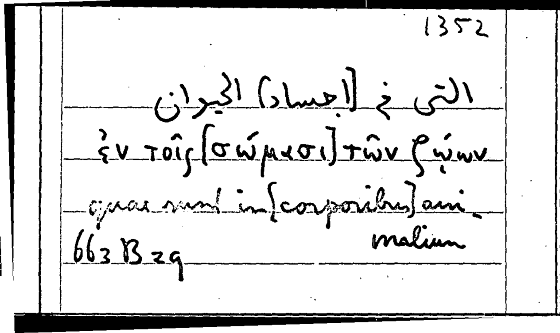 1352
التى فى [اجساد] الحيوان
ἐν τοῖς [σώμασι] τῶν ζῴων
quae sunt in [corporibus] ani-
malium
663 B 29